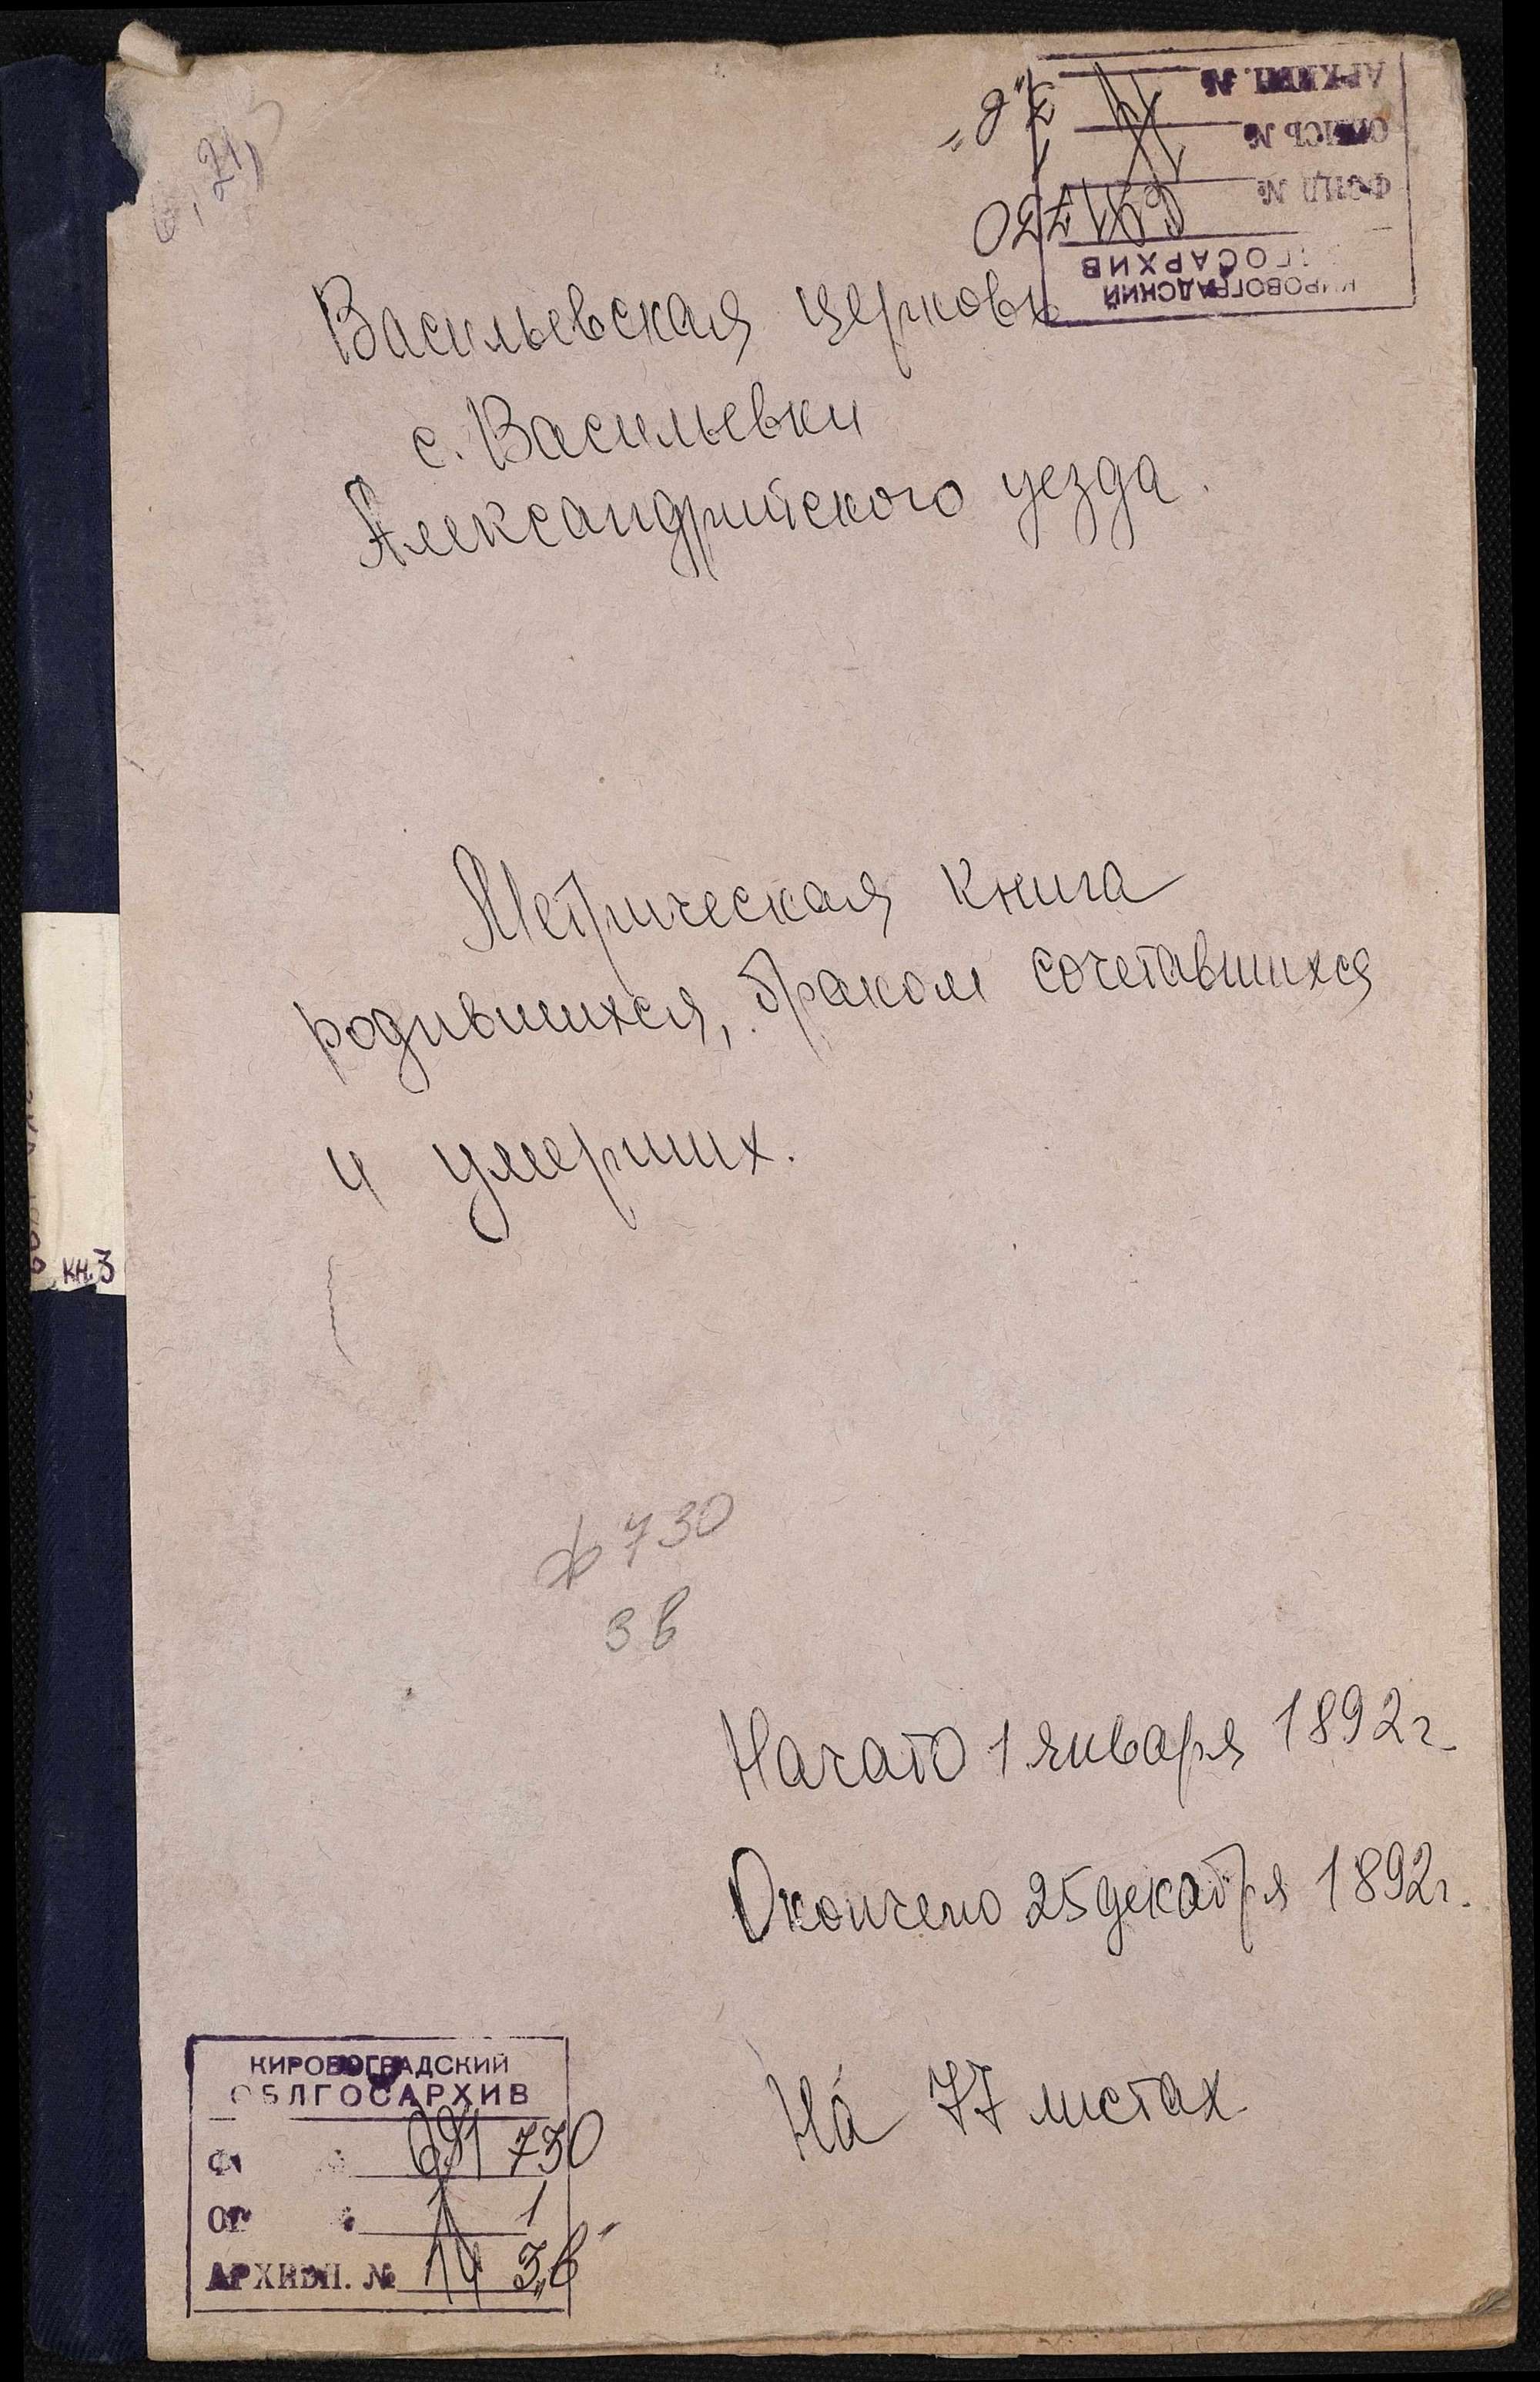 КИРОВОГРАДСКИЙ
ОБЛГОСАРХИВ
ФОНД № 691 730
ОПИСЬ № 1
АРХИВН. № 14 3"в"
Васильевская церковь
с. Васильевки
Александрийского уезда.
Метрическая книга
родившихся, браком сочетавшихся
и умерших.
кн. 3
ф 730
3 в
Начато 1 января 1892 г.
Окончено 25 декабря 1892 г.
На 77 листах
КИРОВОГРАДСКИЙ
ОБЛГОСАРХИВ
691 730
1
АРХИВН. № 14 3"в"